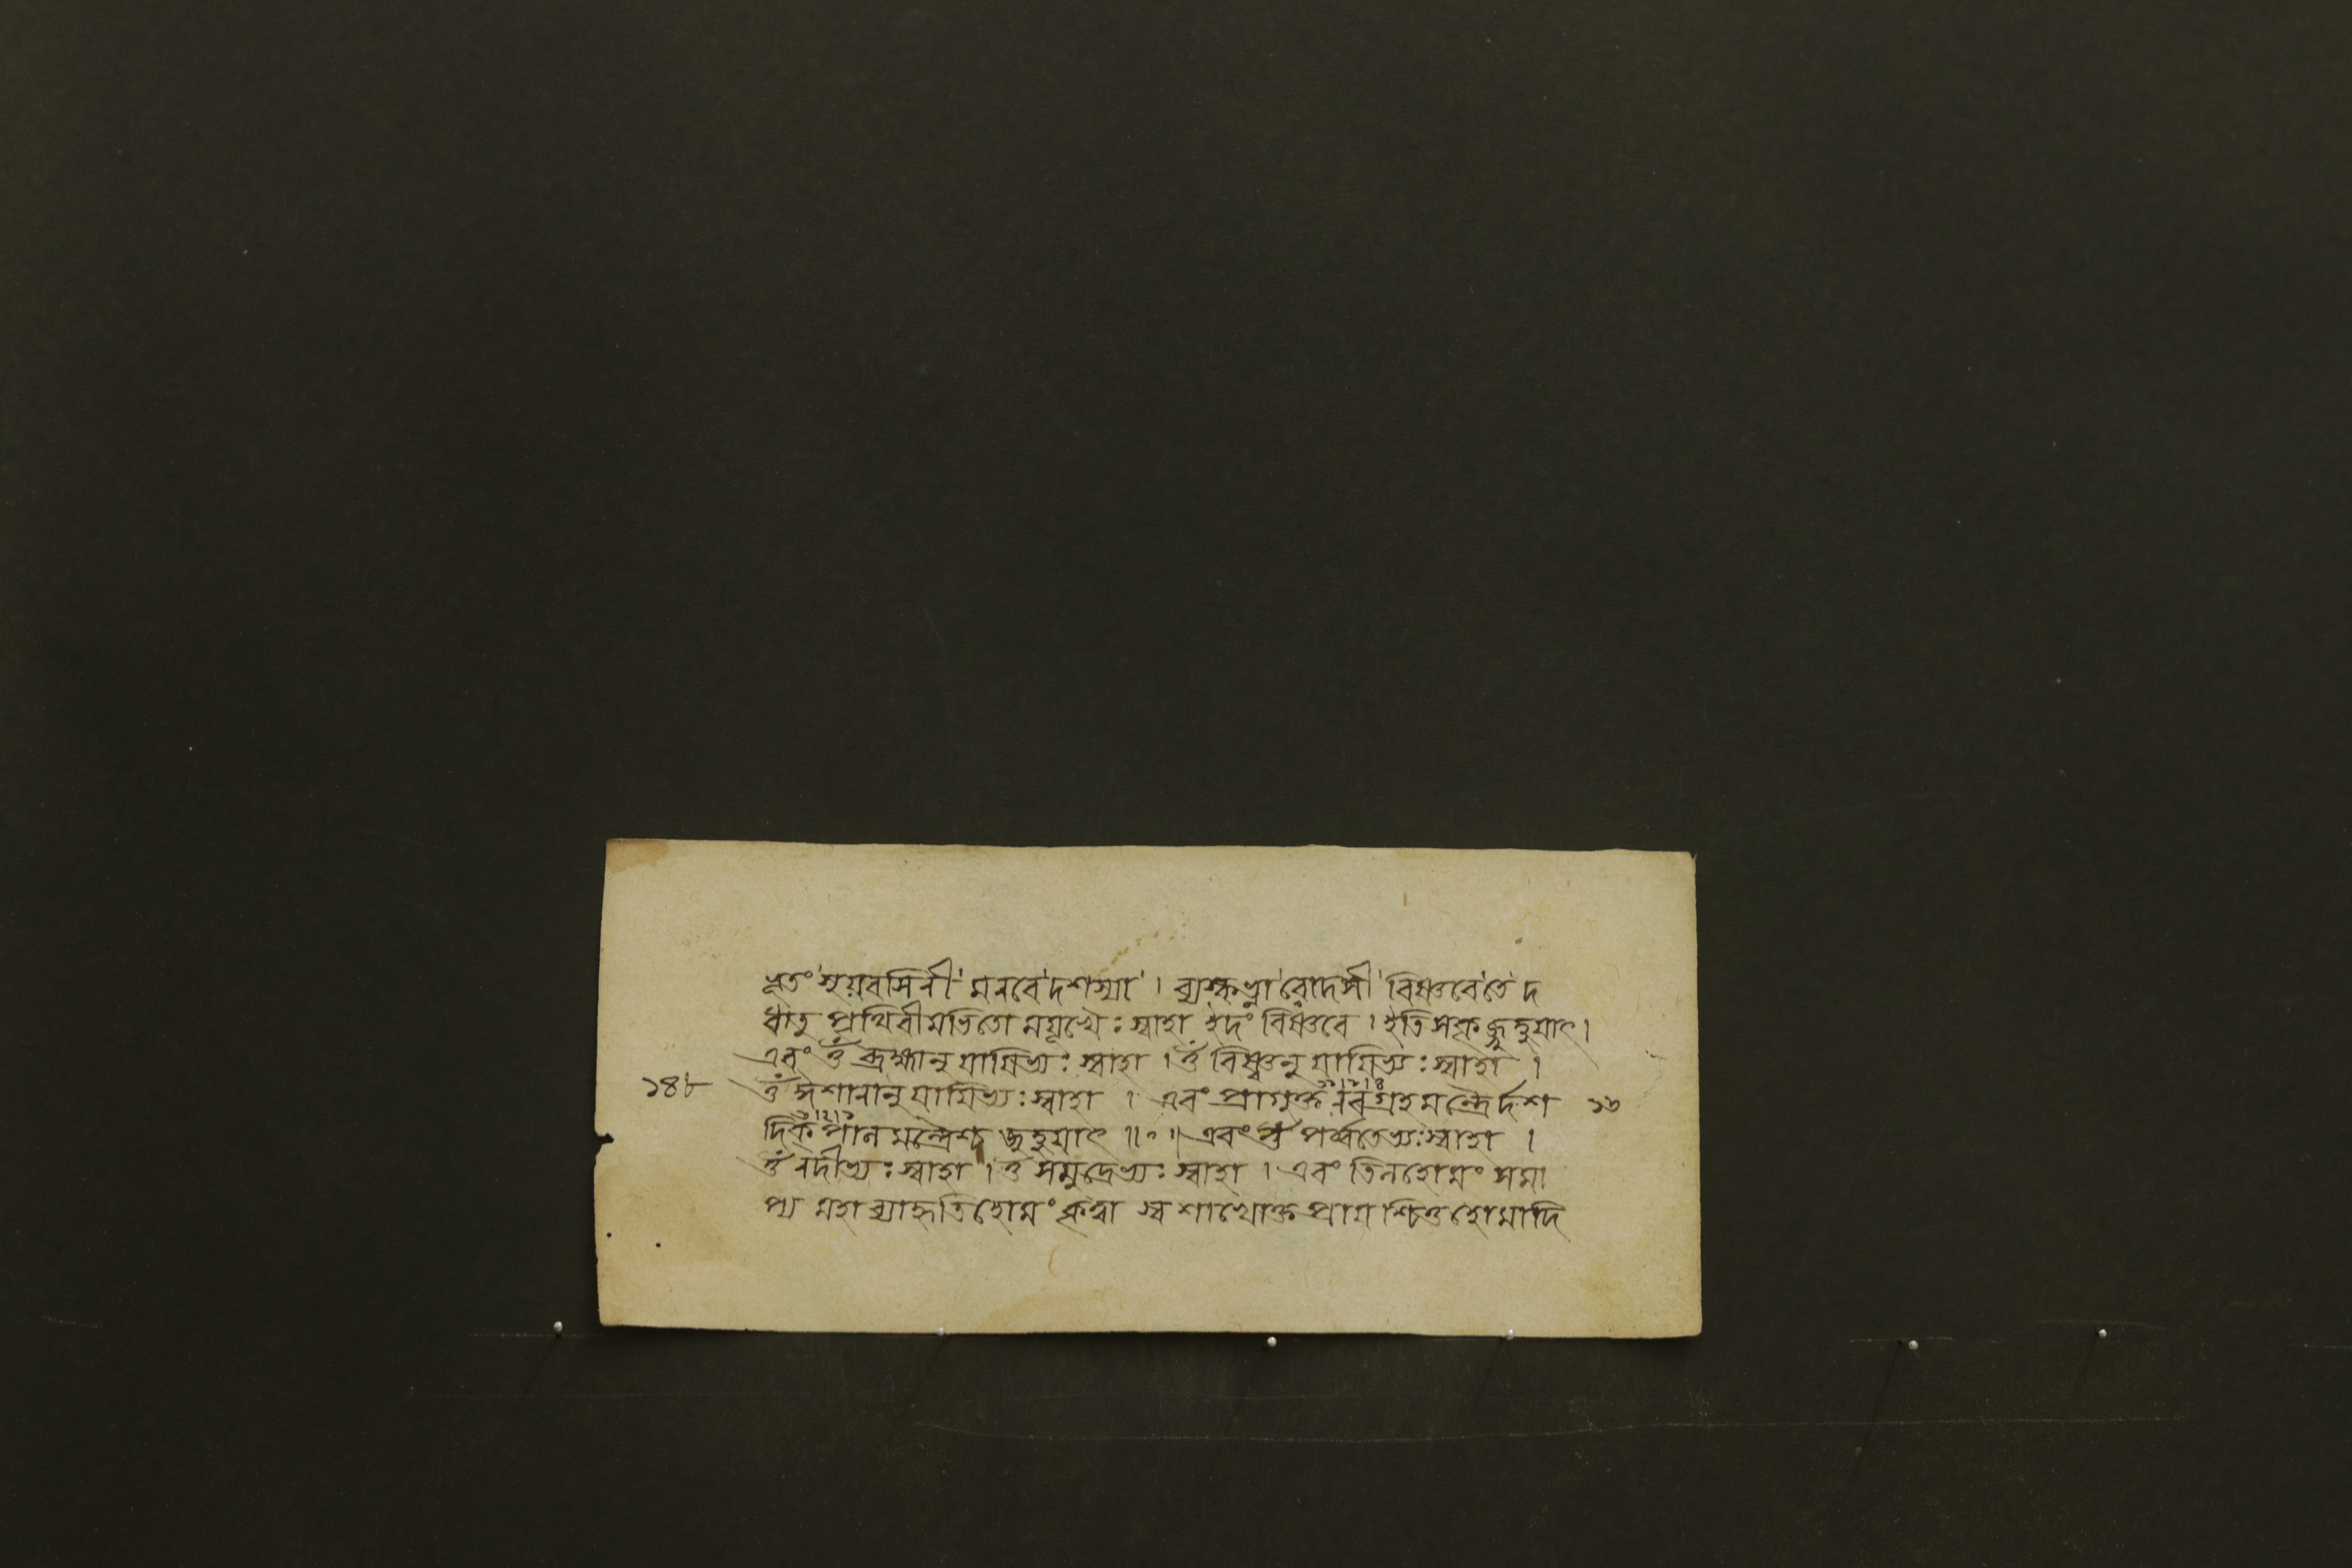 ভূতং সূয়বসিনী মনবে দশস্যা । ব্যস্কভ্না রোদসী বিষ্ণবেতে দ
ধাতু পৃথিবীমভিতো ময়ূখৈঃ স্বাহা ইদং বিষ্ণবে । ইতি সকৃজ্জুহুয়াৎ ।
এবং ওঁ ব্রহ্মানুযায়িভ্যঃ স্বাহা । ওঁ বিষ্ণ্বনুযায়িভ্যঃ স্বাহা ।
১৪৮ ওঁ ঈশানানুযায়িভ্যঃ স্বাহা । এবং প্রাগুক্ত নবগ্রহমন্ত্রৈর্দশ ১৬
দিক্পালমন্ত্রৈশ্চ জুহুয়াৎ ॥ ॰ ॥ এবং ওঁ পর্ব্বতেভ্যঃ স্বাহা ।
ওঁ নদীভ্যঃ স্বাহা । ওঁ সমুদ্রেভ্যঃ স্বাহা । এবং তিলহোমং সমা
প্য মহাব্যাহৃতিহোমং কৃত্বা স্বশাখোক্তপ্রায়শ্চিত্তহোমাদি